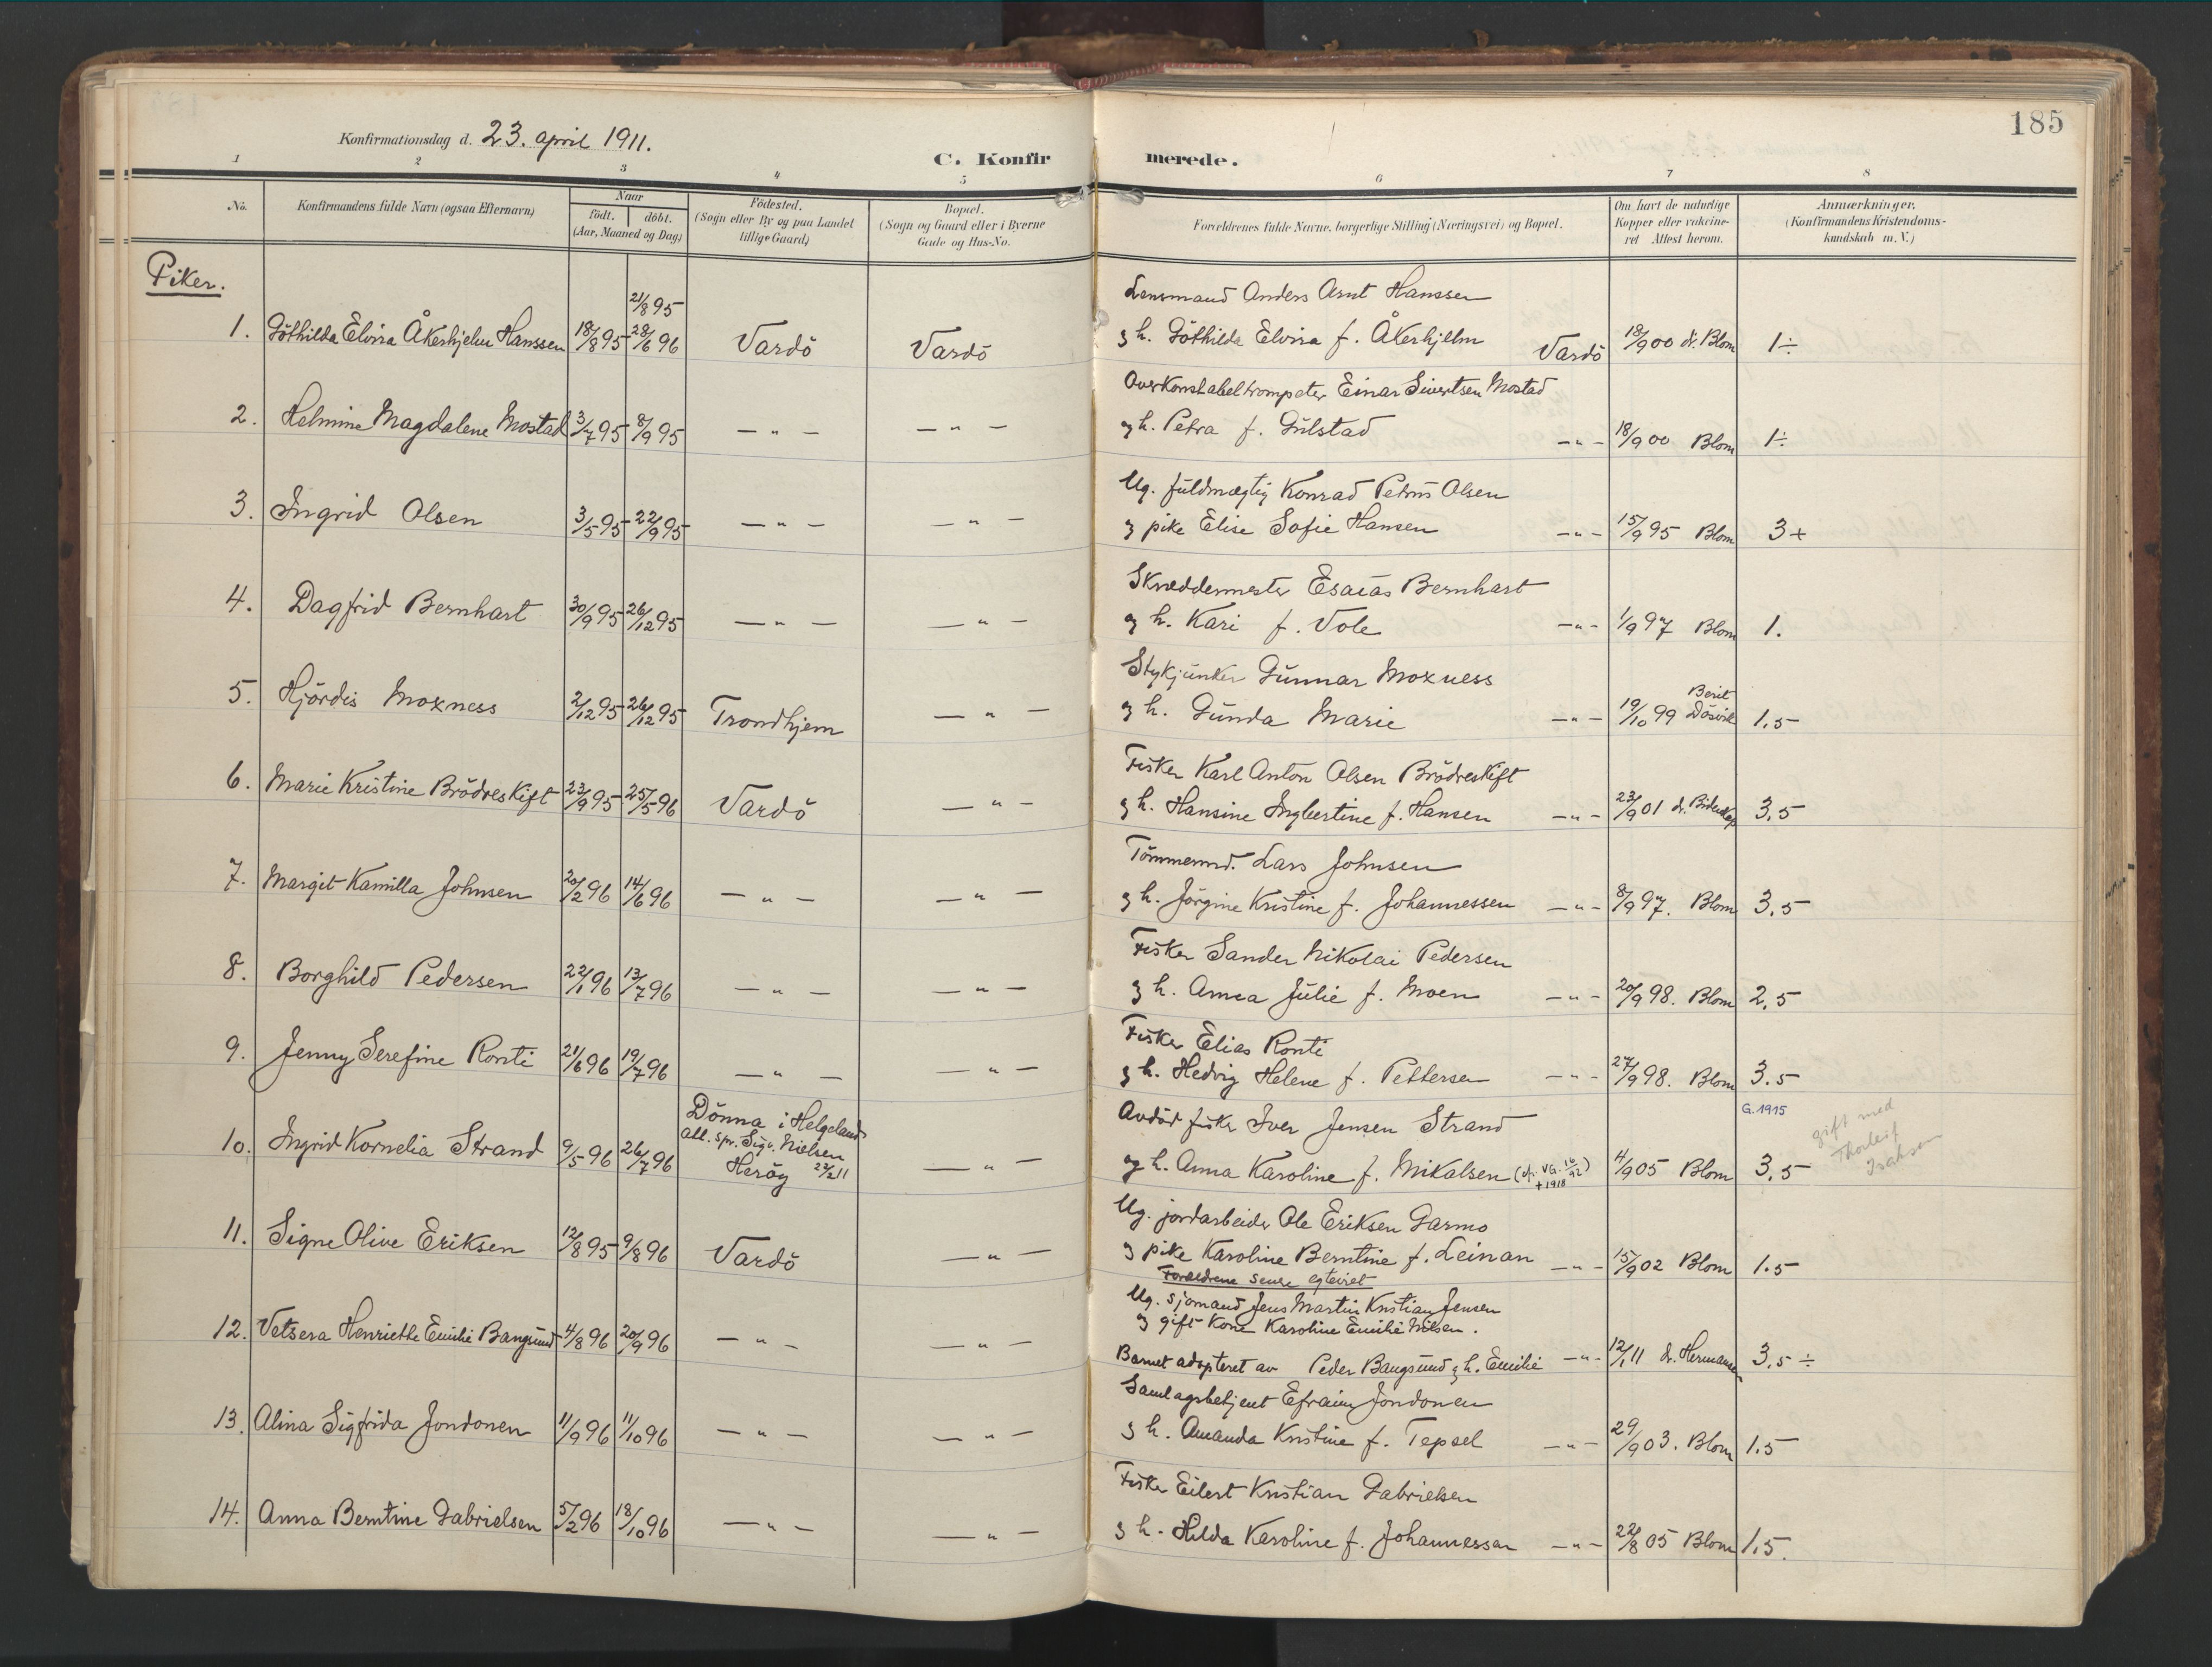 185
Konfirmationsdag d. 23. april 1911.
C. Konfirmerede.
1 2 3 4 5 6 7 8
No.
Konfirmandens fulde Navn (ogsaa Efternavn)
Naar
födt. döbt.
(Aar, Maaned og Dag)
Födested.
(Sogn eller By og paa Landet
tillige Gaard)
Bopæl.
(Sogn og Gaard eller i Byerne
Gade og Hus-No.
Forældrenes fulde Navne, borgerlige Stilling (Næringsvei) og Bopæl.
Om havt de naturlige
Kopper eller vakcine-
ret Attest herom.
Anmærkninger.
(Konfirmandens Kristendoms-
kundskab m. V.)
Piker.
21/8 95
Lensmand Anders Arnt Hanssen
1. Göthilda Elvira Åkerhjelm Hanssen 18/8 95 28/6 96 Vardö Vardö
g h. Göthilda Elvira f. Åkerhjelm Vardö 18/9 00 dr. Blom 1÷
Overkonstabeltrompeter Einar Sivertsen Mostad
2. Helmine Magdalene Mostad 3/7 95 8/9 95 — " — — " —
g h. Petra f. Gülstad — " — 18/9 00 Blom 1÷
Ug. füldmægtig Konrad Petrus Olsen
3. Ingrid Olsen 3/5 95 22/9 95 — " — — " —
g pike Elise Sofie Hansen — " — 15/9 95 Blom 3+
Skræddermester Esaias Bernhart
4. Dagfrid Bernhart 30/9 95 26/12 95 — " — — " —
g h. Kari f. Vole — " — 1/9 97 Blom 1.
Stykjunker Günnar Moxness
5. Hjördis Moxness 2/12 95 26/12 95 Trondhjem — " —
g h. Günda Marie — " — 19/10 99 Berit Dösvik 1,5
Fisker Karl Anton Olsen Brödreskift
6. Marie Kristine Brödreskift 23/9 95 25/5 96 Vardö — " —
g h. Hansine Ingbertine f. Hansen — " — 23/9 01 dr. 3,5
Tömmermd. Lars Johnsen
7. Margit Kamilla Johnsen 20/2 96 14/6 96 — " — — " —
g h. Jörgine Kristine f. Johannessen — " — 8/9 97. Blom 3,5
Fisker Sander Nikolai Pedersen
8. Borghild Pedersen 22/1 96 13/7 96 — " — — " —
g h. Anna Jülie f. Moen — " — 20/9 98. Blom 2,5
Fisker Elias Ronti
9. Jenny Serefine Ronti 21/6 96 19/7 96 — " — — " —
g h. Hedvig Helene f. Pettersen — " — 27/9 98. Blom 3.5
Dönna i Helgeland
Att. spr. Sigv. Nielsen
Heröy 22/2 11
Avdöd fisker Iver Jensen Strand
G. 1915
gift med
Thorleif
Isaksen
10. Ingrid Kornelia Strand 9/5 96 26/7 96 — " —
og h. Anna Karoline f. Mikalsen (cfr. VG. 16/92) +1918 4/9 05 Blom 3,5
Ug. jordarbeider Ole Eriksen Garmo
11. Signe Olive Eriksen 12/8 95 9/8 96 Vardö — " —
g pike Karoline Berntine f. Leinan — " — 15/9 02 Blom 1.5
Forældrene senere egteviet
Ug. sjömand Jens Martin Kristian Jensen
g gift kone Karoline Emilie Nilsen.
12. Vetsera Henriette Emilie Bangsund 4/8 96 20/9 96 — " — — " —
Barnet adopteret av Peder Bangsund g h. Emilie — " — 12/1 11 dr. Hermansen 3,5 ÷
Samlagsbetjent Efraim Jondonen
13. Alina Sigfrida Jondonen 11/9 96 11/10 96 — " — — " —
g h. Amanda Kristine f. Tepsel — " — 29/9 03. Blom 1.5
Fisker Eilert Kristian Gabrielsen
14. Anna Berntine Gabrielsen 5/2 96 18/10 96 — " — — " —
g h. Hilda Karoline f. Johannessen — " — 22/8 05 Blom 1,5.